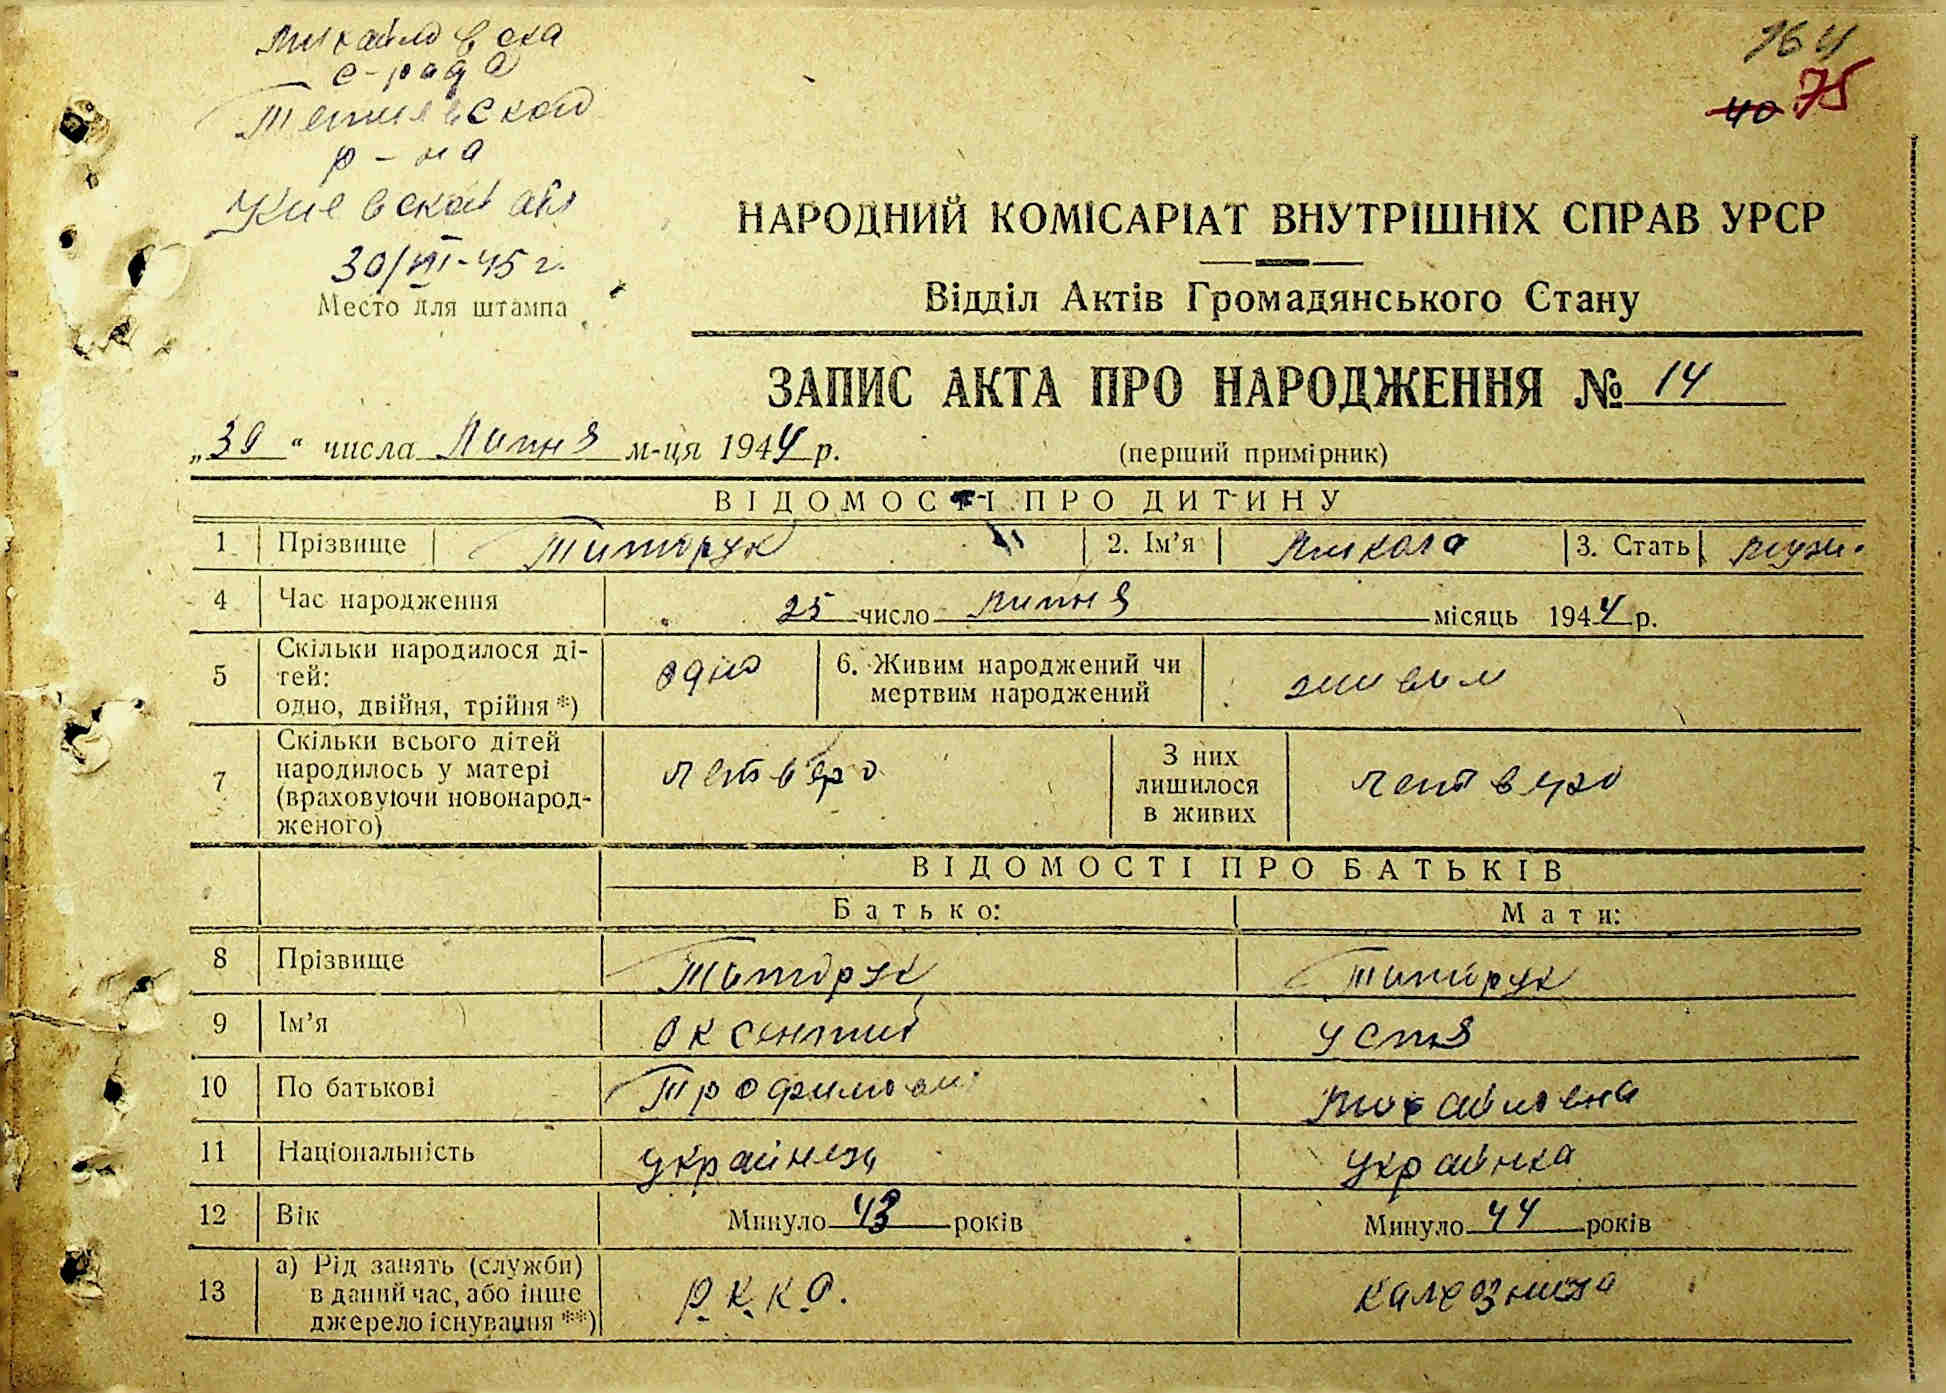 Михайловска
с-рада
р-на
Киевской обл
30/VIII-45 г.
Место для штампа
164
40 75
НАРОДНИЙ КОМІСАРІАТ ВНУТРІШНІХ СПРАВ УРСР
Відділ Актів Громадянського Стану
ЗАПИС АКТА ПРО НАРОДЖЕННЯ № 14
„30“ числа Липня м-ця 1944 р. (перший примірник)
ВІДОМОСТІ ПРО ДИТИНУ
1 Прізвище Титорук 2. Ім’я Микола 3. Стать муж.
4 Час народження 25 число липня місяць 1944 р.
5 Скільки народилося ді-
тей:
одно, двійня, трійня *) одно 6. Живим народжений чи
мертвим народжений живым
7 Скільки всього дітей
народилось у матері
(враховуючи новонарод-
женого) четверо З них
лишилося
в живих четверо
ВІДОМОСТІ ПРО БАТЬКІВ
Батько: Мати:
8 Прізвище Титорук Титорук
9 Ім’я Оксентий Устя
10 По батькові Трофимови Михайловна
11 Національність українец Українка
12 Вік Минуло 43 років Минуло 44 років
13 а) Рід занять (служби)
в даний час, або інше
джерело існування **) Р.К.К.А. калхозница